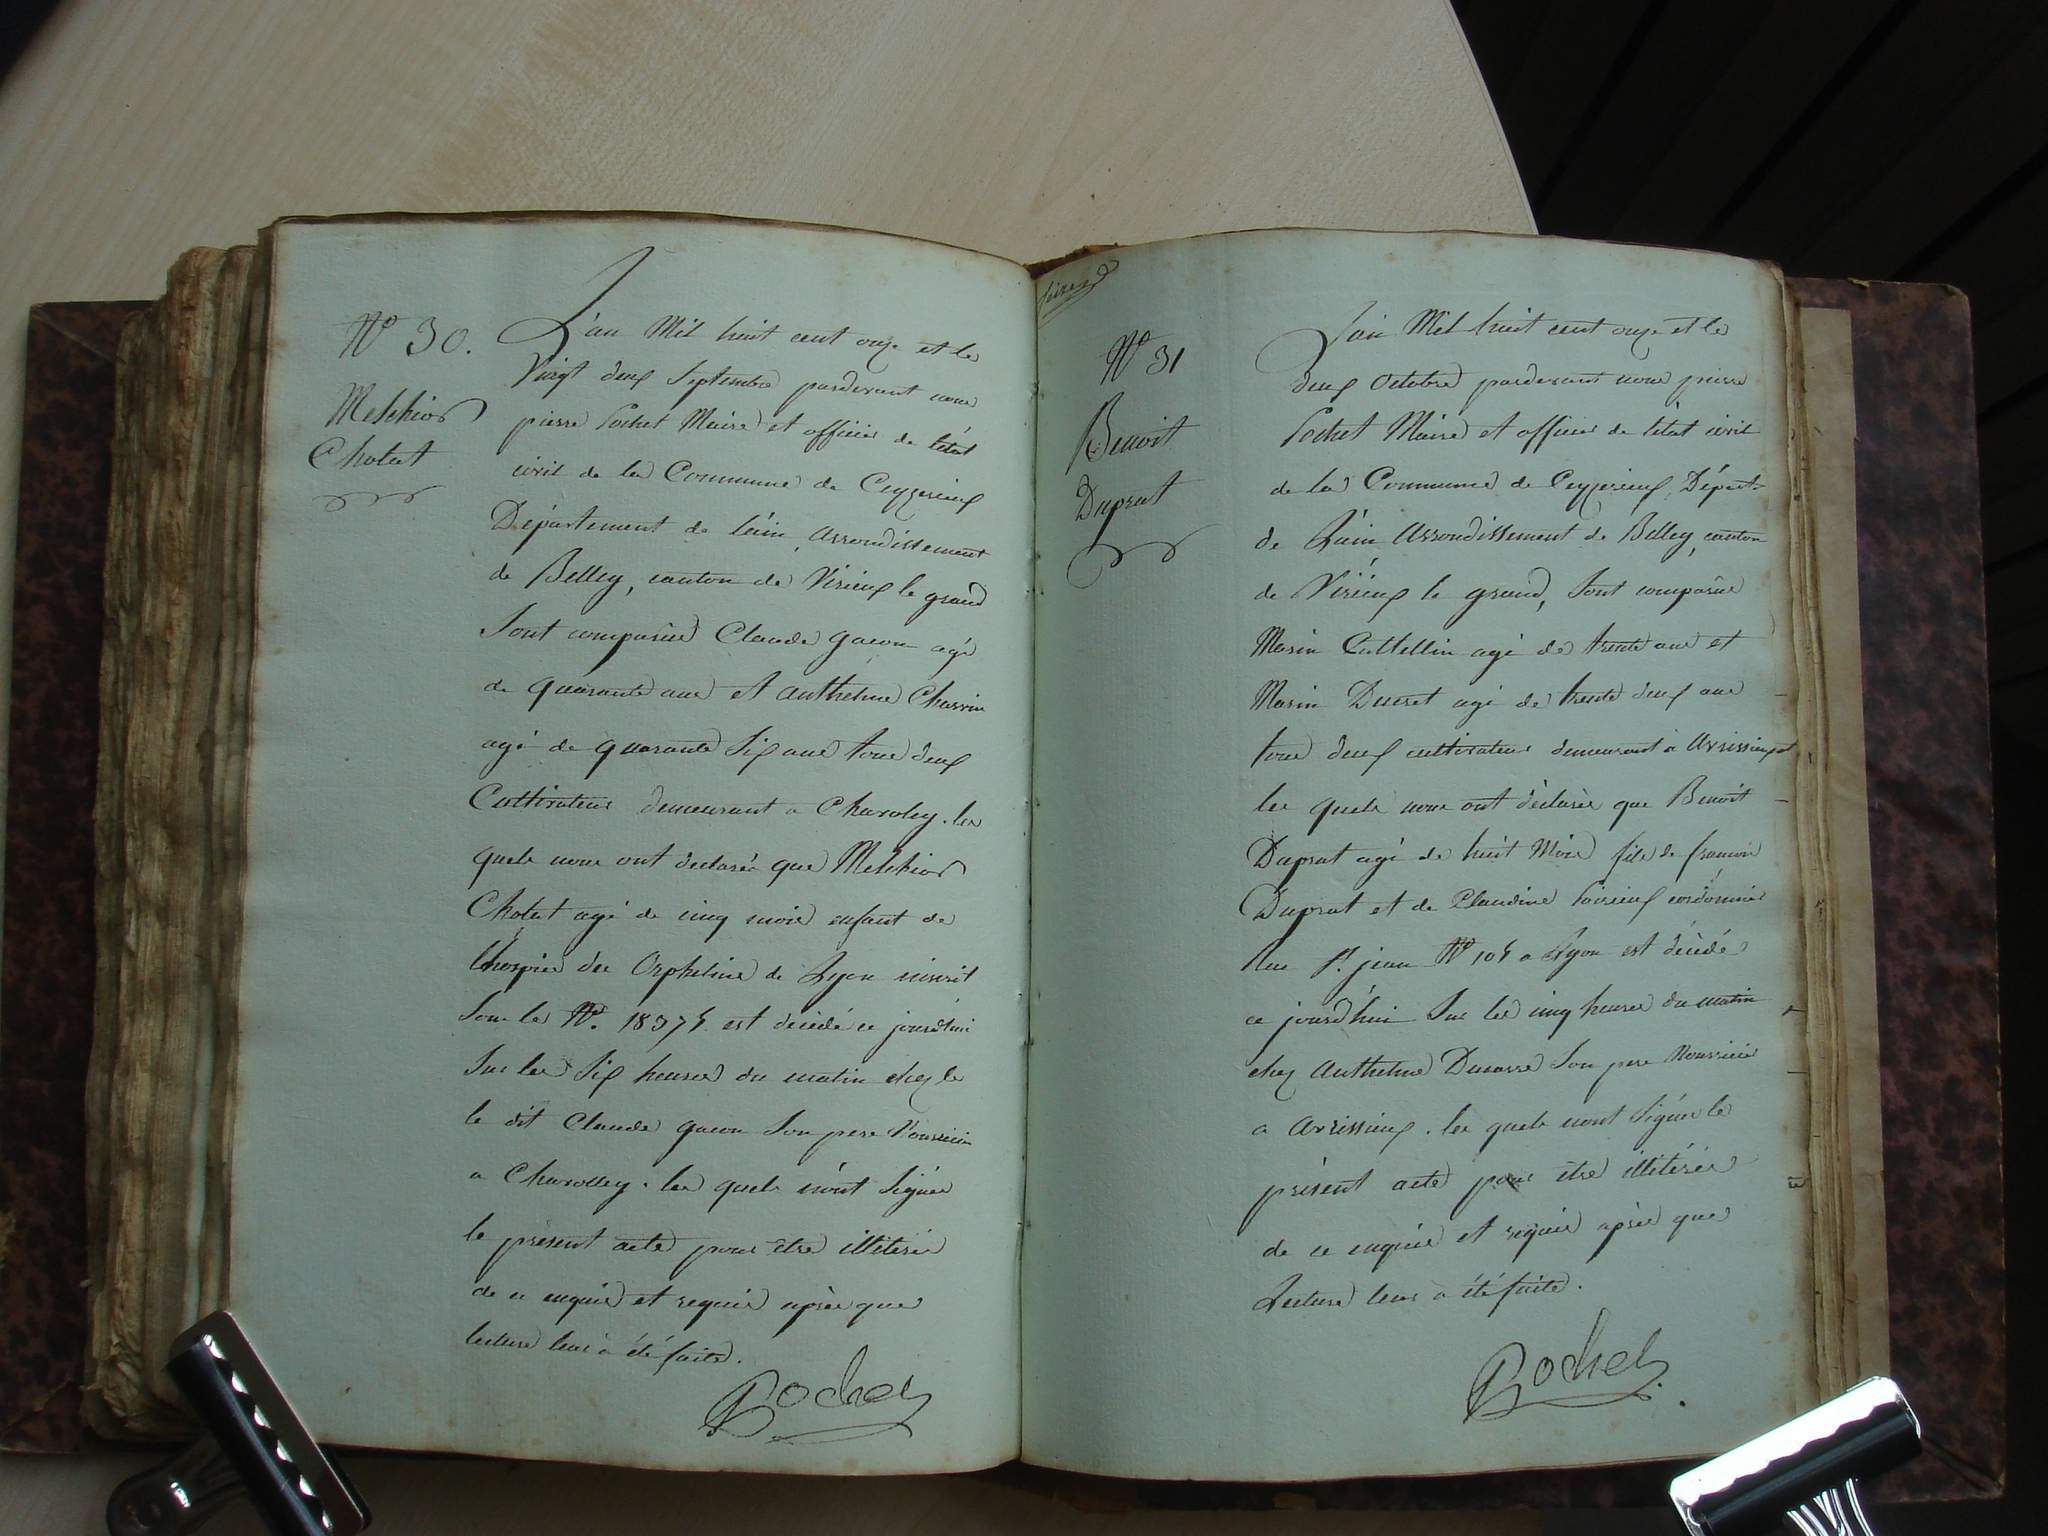 N° 30.
Melchior
Cholat
L'an Mil huit cent onze et le
Vingt deux Septembre pardevant nous
pierre Pochet Maire et officier de l'état
civil de la Commune de Ceyzerieux
Département de l'ain, arrondissement
de Belley, canton de Virieux le grand
Sont comparûs Claude gacon agé
de quarante ans et anthelme Charvin
agé de quarante Six ans tous deux
Cultivateurs demeurant a Chavoley. les
quels nous ont declarés que Melchior
Cholat agé de cinq mois enfant de
l'hospice des Orphelins de Lyon inscrit
Sous le N°. 18375 est décédé ce jourd'hui
Sur les Six heures du matin chez le
le dit Claude gacon Son pere Nourricier
a Chavolley. les quels n'ont Signés
le présent acte pour être illiterés
de ce enquis et requis après que
lecture leur a été faite.
Pochet
N° 31
Benoit
Duprat
L'an Mil huit cent onze et le
deux Octobre pardevant nous pierre
Pochet Maire et officier de l'état civil
de la Commune de Ceyzerieux, Départ.
de L'ain Arrondissement de Belley, canton
de Virieux le grand, Sont comparûs
Marin Cattellin agé de trente ans et
Marin Ducret agé de trente deux ans
tous deux cultivateurs demeurant a Avrissieux
les quels nous ont déclarés que Benoit
Duprat agé de huit Mois fils de francois
Duprat et de Claudine Poirieux cordonnier
Rue St. jean N° 105 a Lyon est décédé
ce jourd'hui Sur les cinq heures du matin
chez Anthelme Ducarre Son pere Nourricier
a avrissieux. les quels n'ont Signés le
présent acte pour être illiterés
de ce enquis et requis après que
Lecture leur a été faite.
Pochet